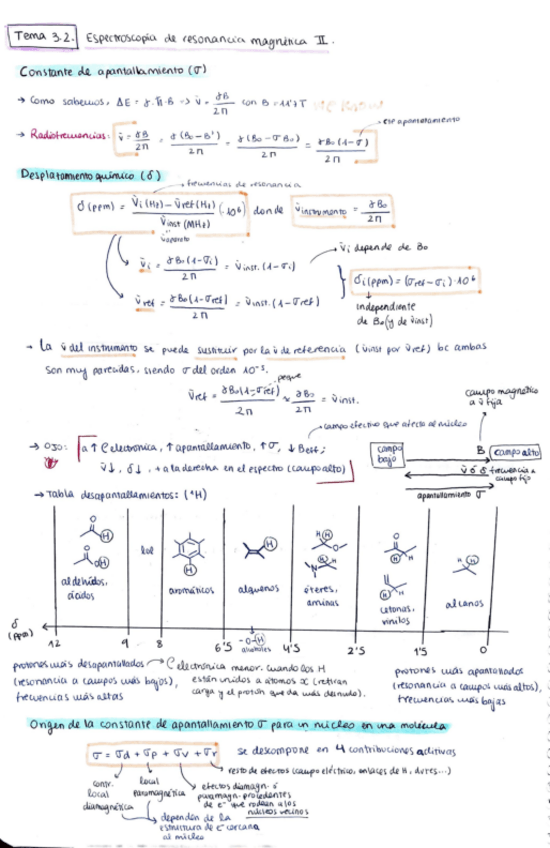 Tema 3.2. Espectroscopía de resonancia magnética II.
Constante de apantallamiento (σ)
→ Como sabemos, ΔE = γ·ħ·B → ν = γB/2π con B = 11'7 T
→ Radiofrecuencias: ν = γB/2π = γ(B₀-B')/2π = γ(B₀-σB₀)/2π = γB₀(1-σ)/2π
cte apantallamiento
Desplazamiento químico (δ)
frecuencias de resonancia
δ(ppm) = νi(Hz) - νref(Hz) / νinst(MHz) (·10⁶) donde νinstrumento = γB₀/2π
νaparato
νi depende de B₀
νi = γB₀(1-σi)/2π = νinst.(1-σi)
δi(ppm) = (σref-σi)·10⁶
νref = γB₀(1-σref)/2π = νinst.(1-σref)
independiente
de B₀(y de νinst)
→ La ν del instrumento se puede sustituir por la ν de referencia (νinst por νref) bc ambas
son muy parecidas, siendo σ del orden 10⁻⁵.
peque
νref = γB₀(1-σref)/2π ≈ γB₀/2π = νinst.
campo magnético
a ν fija
campo efectivo que afecta al núcleo
→ OJO: a ↑ ρ electrónica, ↑ apantallamiento, ↑σ, ↓ Beff;
ν↓, δ↓, + a la derecha en el espectro (campo alto)
campo bajo
B
campo alto
ν ó δ frecuencia a campo fijo
apantallamiento σ
→ Tabla desapantallamientos: (¹H)
aldehídos,
ácidos
aromáticos
alquenos
éteres,
aminas
cetonas,
vinilos
alcanos
δ
(ppm)
12 9 8 6'5 4'5 2'5 1'5 0
-O-H
alcoholes
protones más desapantallados
(resonancia a campos más bajos),
frecuencias más altas
ρ electrónica menor. Cuando los H
están unidos a átomos X (retiran
carga y el protón queda más desnudo).
protones más apantallados
(resonancia a campos más altos),
frecuencias más bajas
Origen de la constante de apantallamiento σ para un núcleo en una molécula
σ = σd + σp + σv + σr se descompone en 4 contribuciones aditivas
resto de efectos (campo eléctrico, enlaces de H, dvtes...)
contr.
local
diamagnética
local
Paramagnética
efectos diamagn. ó
paramagn. procedentes
de e⁻ que rodean a los
núcleos vecinos
dependen de la
estructura de e⁻ cercana
al núcleo